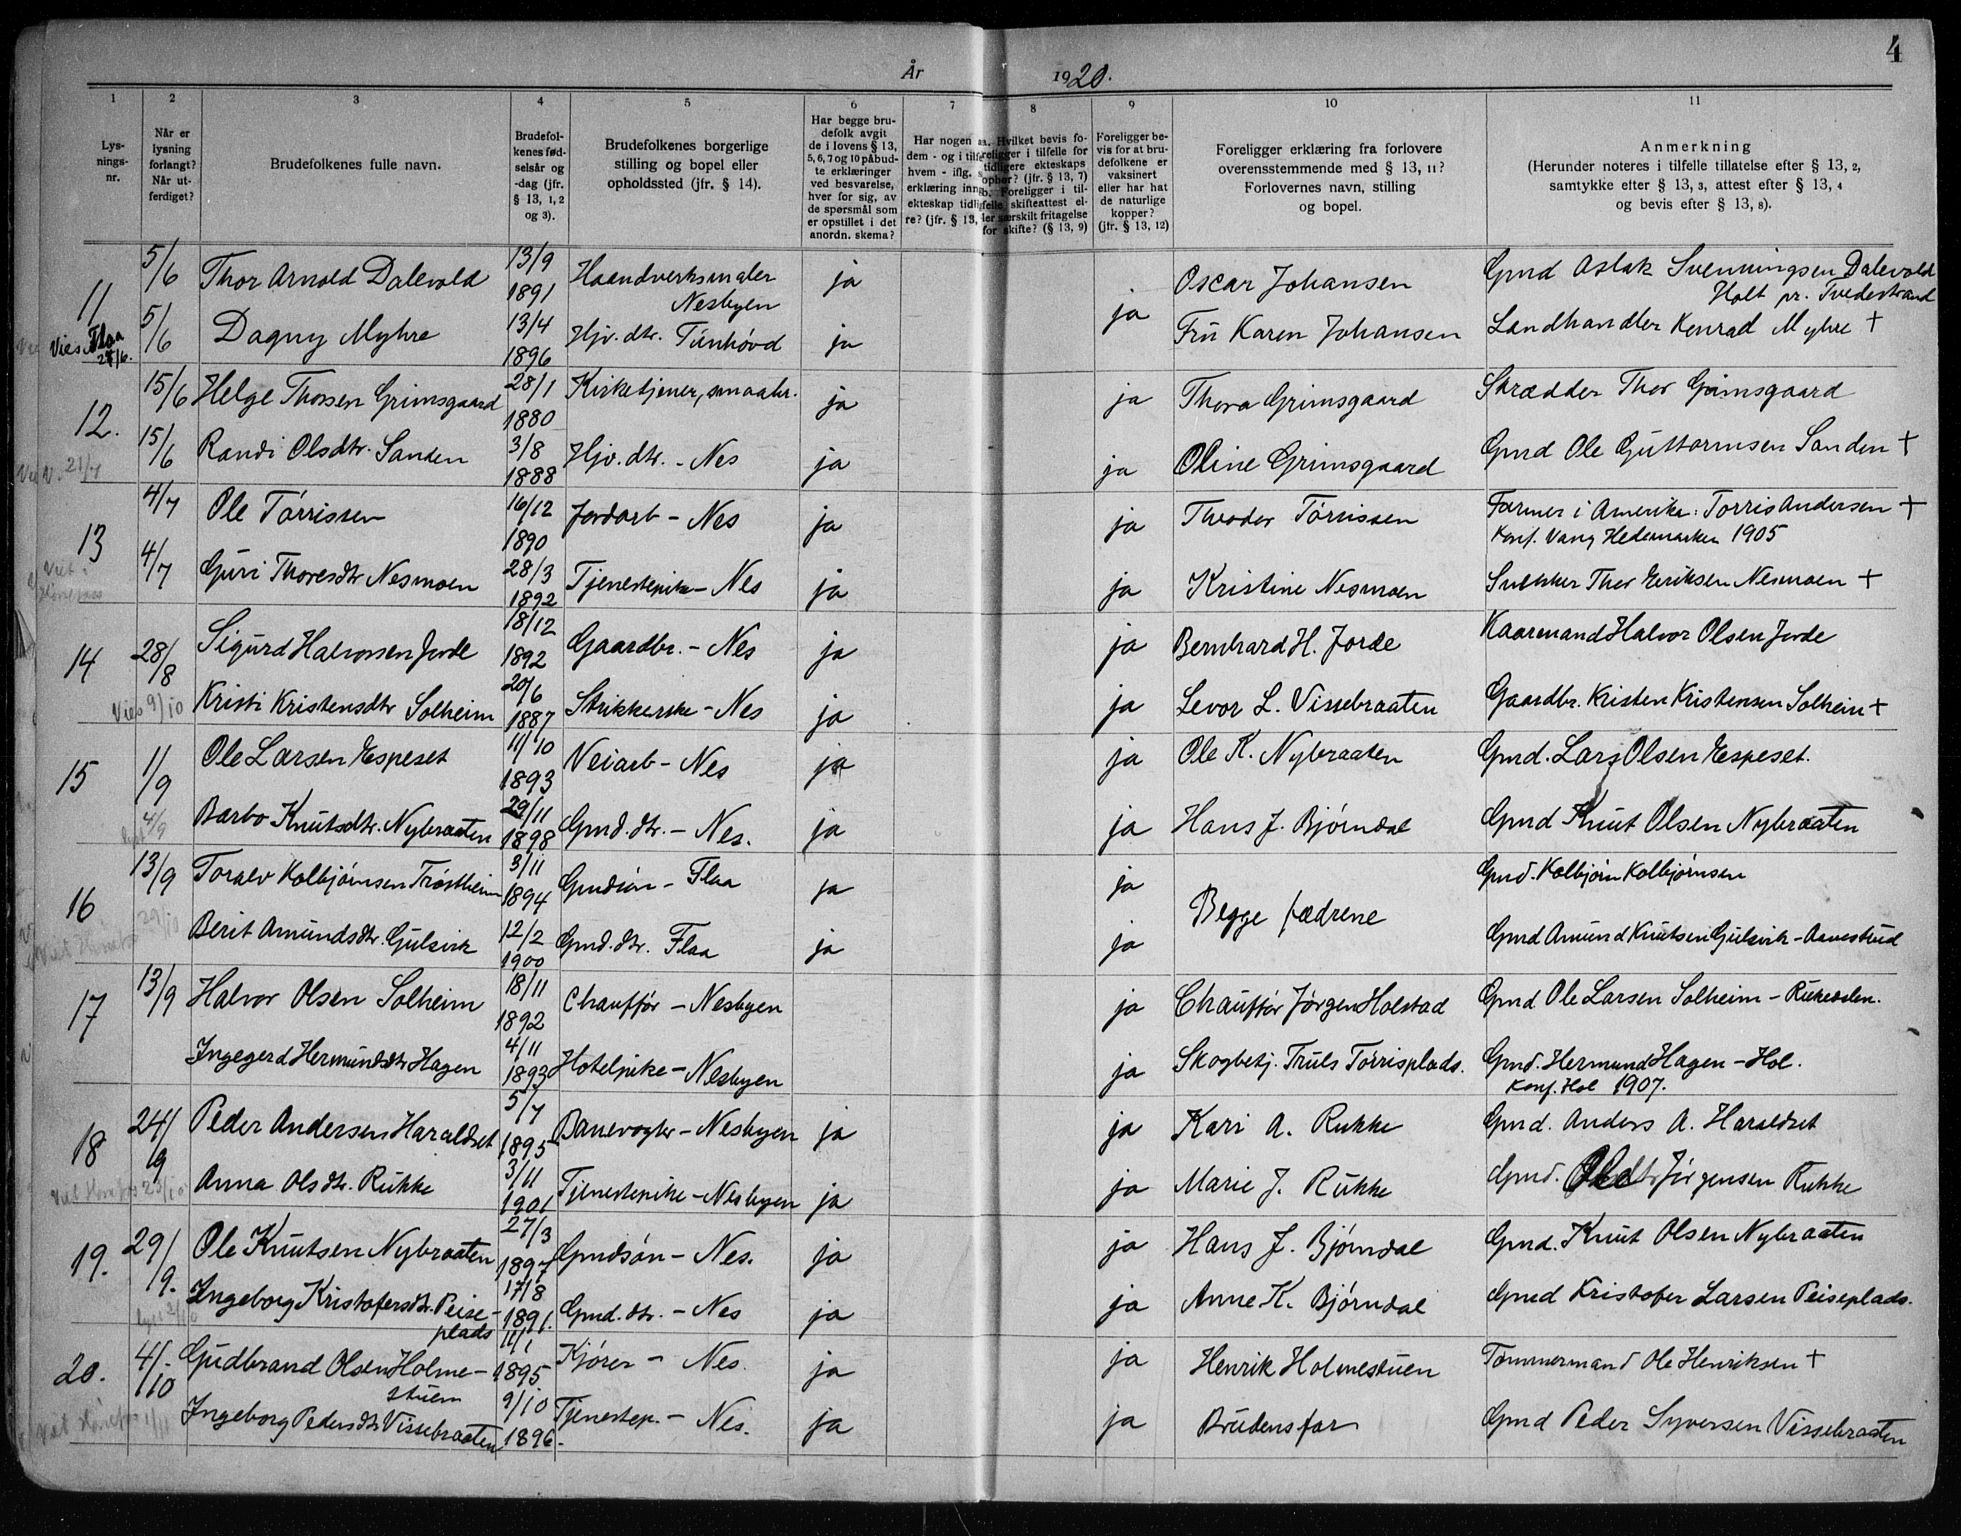 4
År 1920.
1 2 3 4 5 6 7 8 9 10 11
Lys-
nings-
nr.
Når er
lysning
forlangt?
Når ut-
ferdiget?
Brudefolkenes fulle navn.
Brudefol-
kenes fød-
selsår og
-dag (jfr.
§ 13, 1, 2
og 3).
Brudefolkenes borgerlige
stilling og bopel eller
opholdssted (jfr. § 14).
Har begge bru-
defolk avgit
de i lovens § 13,
5, 6, 7 og 10 påbud-
te erklæringer
ved besvarelse,
hver for sig, av
de spørsmål som
er opstillet i det
anordn. skema?
Har nogen a
dem - og i tilf
hvem - iflg. s
erklæring inng
ekteskap tidli
re? (jfr. § 13,
a. Hvilket bevis fo-
religger i tilfelle for
tidligere ekteskaps
ophør? (jfr. § 13, 7)
b. Foreligger i til-
felle skifteattest el-
ler særskilt fritagelse
for skifte? (§ 13, 9)
Foreligger be-
vis for at bru-
defolkene er
vaksinert
eller har hat
de naturlige
kopper?
(jfr. § 13, 12)
Foreligger erklæring fra forlovere
overensstemmende med § 13, 11?
Forlovernes navn, stilling
og bopel.
Anmerkning
(Herunder noteres i tilfelle tillatelse efter § 13, 2,
samtykke efter § 13, 3, attest efter § 13, 4
og bevis efter § 13, 8).
11 5/6 Thor Arnold Dalevold 13/9 1891 Haandverksmaler Nesbyen ja Oscar Johansen Gmd Aslak Svenningsen Dalevold
Holt pr. Tvedestrand
Vies Flaa 24/6. 5/6 Dagny Myhre 13/4 1896 Hjv. dtr. Tunhøvd ja ja Fru Karen Johansen Landhandler Konrad Myhre +
12. 15/6 Helge Thorsen Grimsgaard 28/1 1880 Kirketjener, smaabr. ja ja Thora Grimsgaard Skrædder Thor Grimsgaard
V. 21/7 15/6 Randi Olsdtr. Sanden 3/8 1888 Hjv. dtr. - Nes ja ja Oline Grimsgaard Gmd Ole Guttormsen Sanden +
13 4/7 Ole Torrissen 16/12 1890 Jordarb - Nes ja ja Theodor Torrissen Farmer i Amerika: Torris Andersen +
Konf. Vang Hedemarken 1905
4/7 Guri Thoresdtr Nesmoen 28/3 1892 Tjenestepike - Nes ja ja Kristine Nesmoen Snekker Thor Eriksen Nesmoen +
14 28/8 Sigurd Halvorsen Jorde 18/12 1892 Gaardbr. - Nes ja ja Bernhard H. Jorde Kaarmand Halvor Olsen Jorde
Vies 9/10 Kristi Kristensdtr Solheim 20/6 1887 Strikkerske - Nes ja ja Levor L. Vissebraaten Gaardbr. Kristen Kristensen Solheim +
15 1/9 Ole Larsen Espeset 11/10 1893 Veiarb - Nes ja ja Ole K. Nybraaten Gmd. Lars Olsen Espeset.
4/9 Barbo Knutsdtr. Nybraaten 29/11 1898 Gmd. dtr. - Nes. ja ja Hans J. Bjørndal Gmd Knut Olsen Nybraaten
16 13/9 Toralv Kolbjørnsen Trøstheim 3/11 1894 Gmdsøn - Flaa ja ja Begge fædrene Gmd. Kolbjørn Kolbjørnsen
29/10 Berit Amundsdtr. Gulsvik 12/2 1900 Gmd. dtr. Flaa ja ja Gmd Amund Knutsen Gulsvik - Aavestrud
17 13/9 Halvor Olsen Solheim 18/11 1892 Chauffør - Nesbyen ja Chauffør Jørgen Holstad Gmd Ole Larsen Solheim - Rukedalen.
Ingegerd Hermundsdtr Hagen 4/11 1893 Hotelpike - Nesbyen ja Skogbetj. Truls Torrisplads. Gmd. Hermund Hagen - Hol.
Konf. Hol 1907.
18 24/9 Peder Andersen Haraldset 5/7 1895 Banevogter - Nesbyen ja ja Kari A. Rukke Gmd. Anders A. Haraldset
Viet Hønefos 23/10 Anna Olsdtr. Rukke 3/11 1901 Tjenestepike - Nesbyen ja ja Marie J. Rukke Gmd. Ole Jørgensen Rukke
19. 29/9. Ole Knutsen Nybraaten 27/3 1897 Gmdsøn - Nes. ja ja Hans J. Bjørndal Gmd. Knut Olsen Nybraaten
2/10 Ingeborg Kristofersdtr. Peise-
plads 17/8 1891. Gmd. dtr. - Nes ja ja Anne K. Bjørndal Gmd Kristofer Larsen Peiseplads.
20. 4/10 Gudbrand Olsen Holme-
stuen 11/1 1895 Kjører - Nes. ja ja Henrik Holmestuen Tømmermand Ole Henriksen +
Viet Hønefos 1/11 Ingeborg Pedersdtr Vissebraaten 9/10 1896 Tjenestep. - Nes. ja ja Brudens far Gmd Peder Syversen Vissebraaten